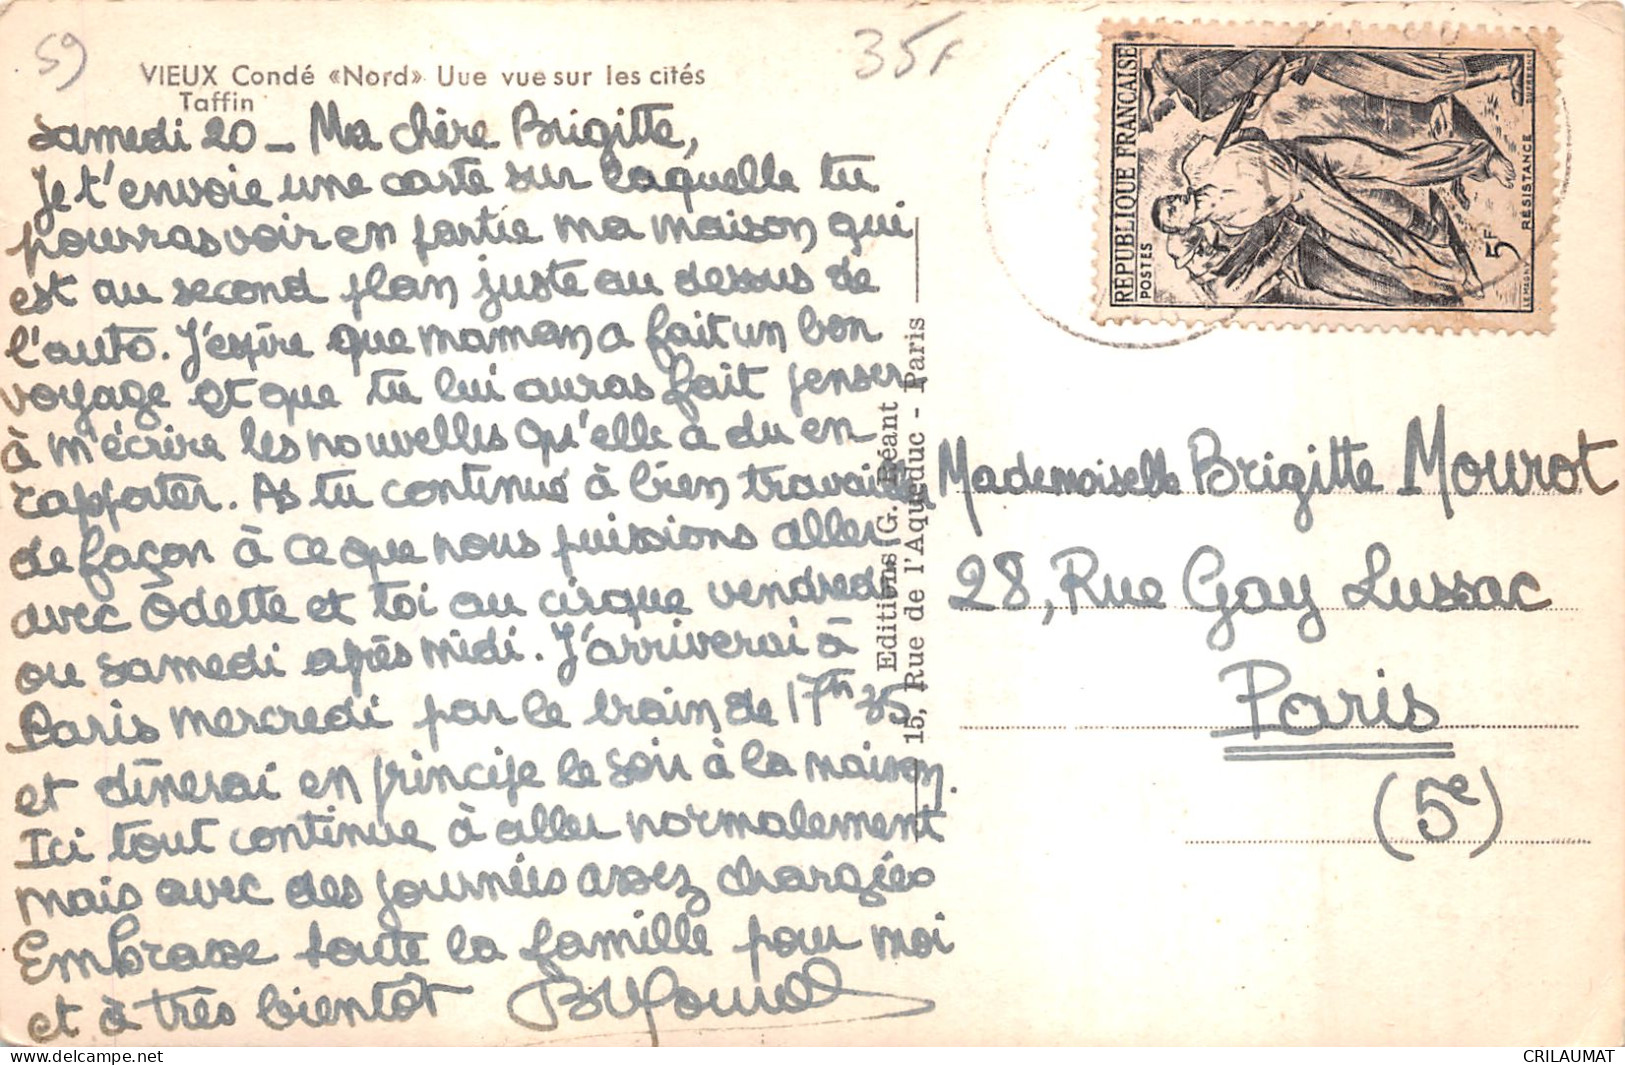 59
35F
VIEUX Condé «Nord» Uue vue sur les cités
Taffin
Samedi 20 - Ma chère Brigitte,
Je t'envoie une carte sur laquelle tu
pourras voir en partie ma maison qui
est au second plan juste au dessus de
l'auto. J'espère que maman a fait un bon
voyage et que tu lui auras fait penser,
à m'écrire les nouvelles qu'elle a du en
rapporter. As tu continué à bien travailler
de façon à ce que nous puissions aller
avec Odette et toi au cirque vendredi
ou samedi après midi. J'arriverai à
Paris mercredi par le train de 17h 35
et dînerai en principe le soir à la maison.
Ici tout continue à aller normalement
mais avec des journées assez chargées
Embrasse toute la famille pour moi
et à très bientôt
Editions G. Réant
15, Rue de l'Aqueduc - Paris
RÉPUBLIQUE FRANÇAISE
POSTES
5F
RÉSISTANCE
LEMAGNY
DUFRESNE
Mademoiselle Brigitte Mourot
28, Rue Gay Lussac
Paris
(5e)
https://www.delcampe.net
CRILAUMAT